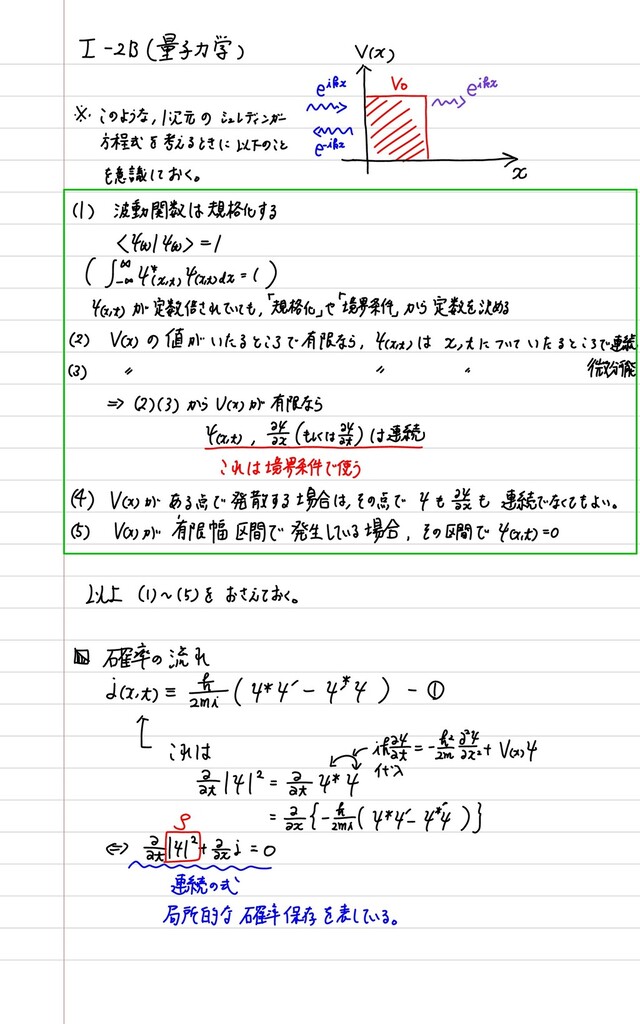 I-2B (量子力学)
V(x)
V₀
e^{ikx}
e^{ikx}
e^{-ikx}
x
※ このような, 1次元の シュレディンガー
方程式を考えるときに以下のこと
を意識しておく。
(1) 波動関数は規格化する
<ψ(x)|ψ(x)> = 1
( ∫_{-∞}^{∞} ψ*(x,t) ψ(x,t) dx = 1 )
ψ(x,t) が定数倍されていても,「規格化」や「境界条件」から定数を決める
(2) V(x) の値がいたるところで有限なら, ψ(x,t) は x, t について いたるところで連続
(3) 〃 〃 〃 微分可能
⇒ (2)(3) から V(x) が有限なら
ψ(x,t), ∂ψ/∂x (もしくは ∂ψ/∂t) は連続
これは境界条件で使う
(4) V(x) が ある点で発散する場合は, その点で ψ も ∂ψ/∂x も 連続でなくてもよい。
(5) V(x) が 有限幅 区間で 発生している場合, その区間で ψ(x,t) = 0
以上 (1)〜(5) を おさえておく。
確率の流れ
j(x,t) ≡ ℏ/2mi ( ψ*ψ' − ψ*'ψ ) − ①
これは
iℏ ∂ψ/∂t = −ℏ²/2m ∂²ψ/∂x² + V(x)ψ
代入
∂/∂t |ψ|² = ∂/∂t ψ*ψ
= ∂/∂x { −ℏ/2mi ( ψ*ψ' − ψ*'ψ ) }
ρ
⇔ ∂/∂t |ψ|² + ∂/∂x j = 0
連続の式
局所的な 確率保存を表している。